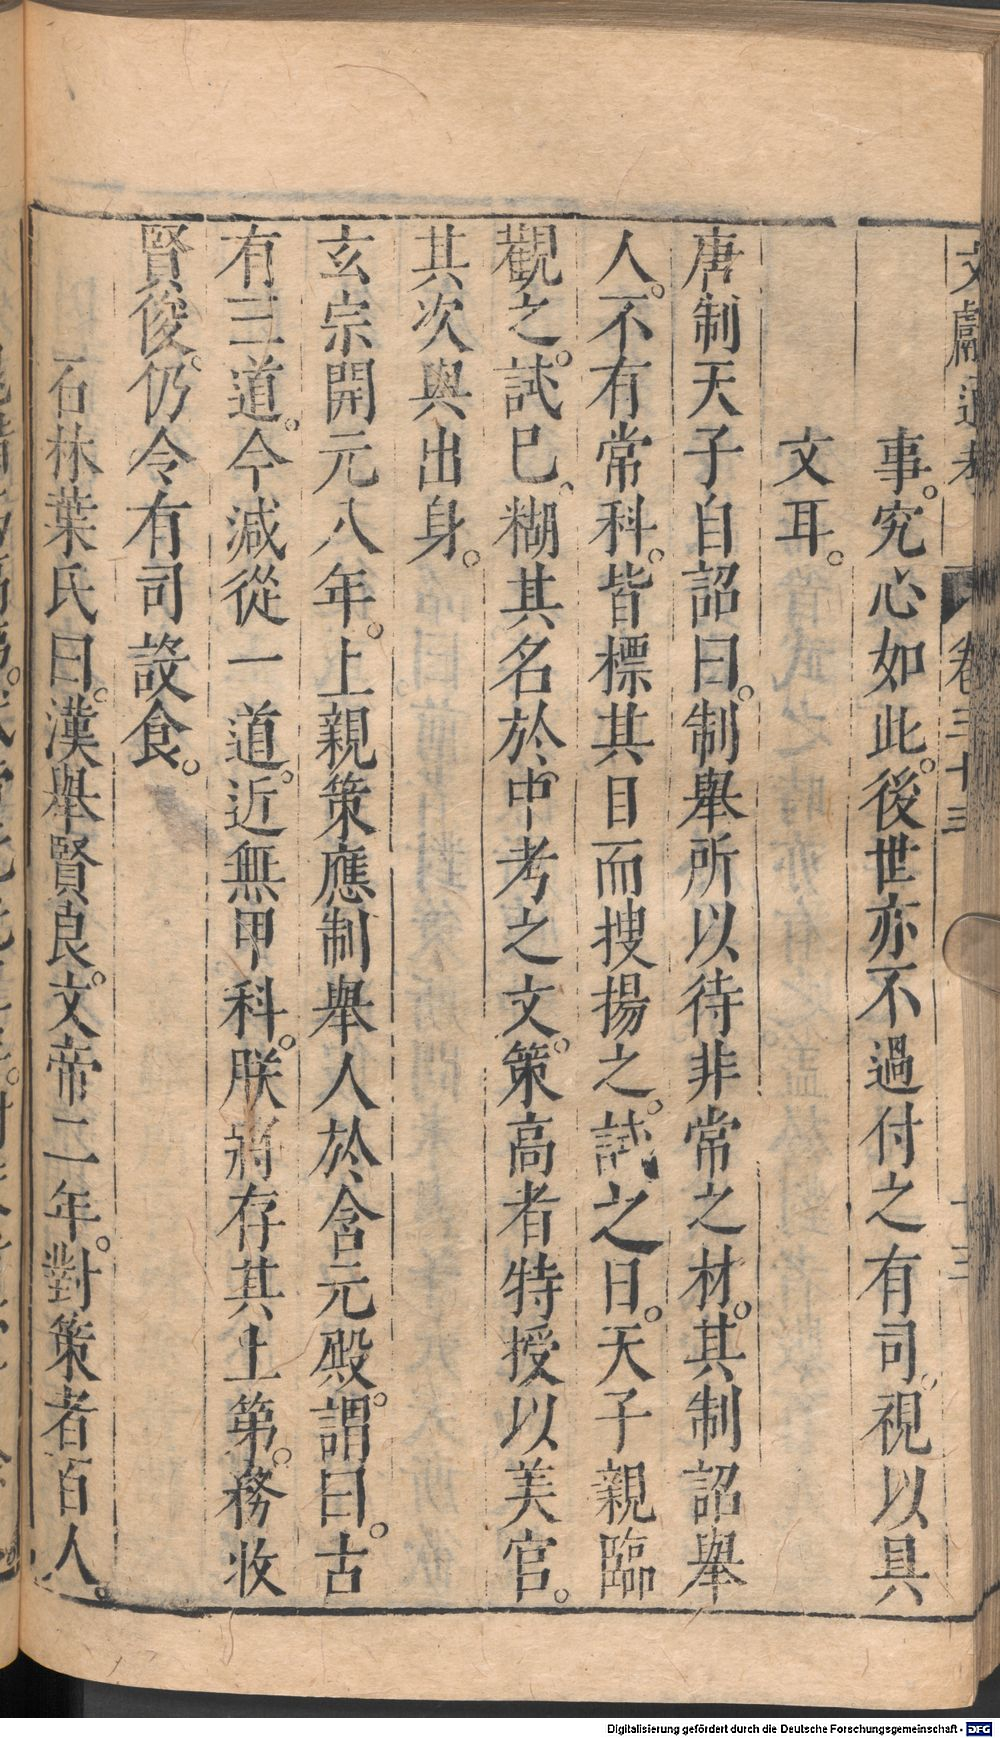 文獻通考 卷三十三
事。究心如此。後世亦不過付之有司。視以具
文耳。
唐制天子自詔曰。制舉所以待非常之材。其制詔舉
人。不有常科。皆標其目而搜揚之。試之日。天子親臨
觀之。試已。糊其名於中考之文。策高者特授以美官。
其次與出身。
玄宗開元八年。上親策應制舉人於含元殿。謂曰。古
有三道。今減從一道。近無甲科。朕將存其上第。務收
賢俊。仍令有司設食。
石林葉氏曰。漢舉賢良。文帝二年。對策者百人。
Digitalisierung gefördert durch die Deutsche Forschungsgemeinschaft - DFG